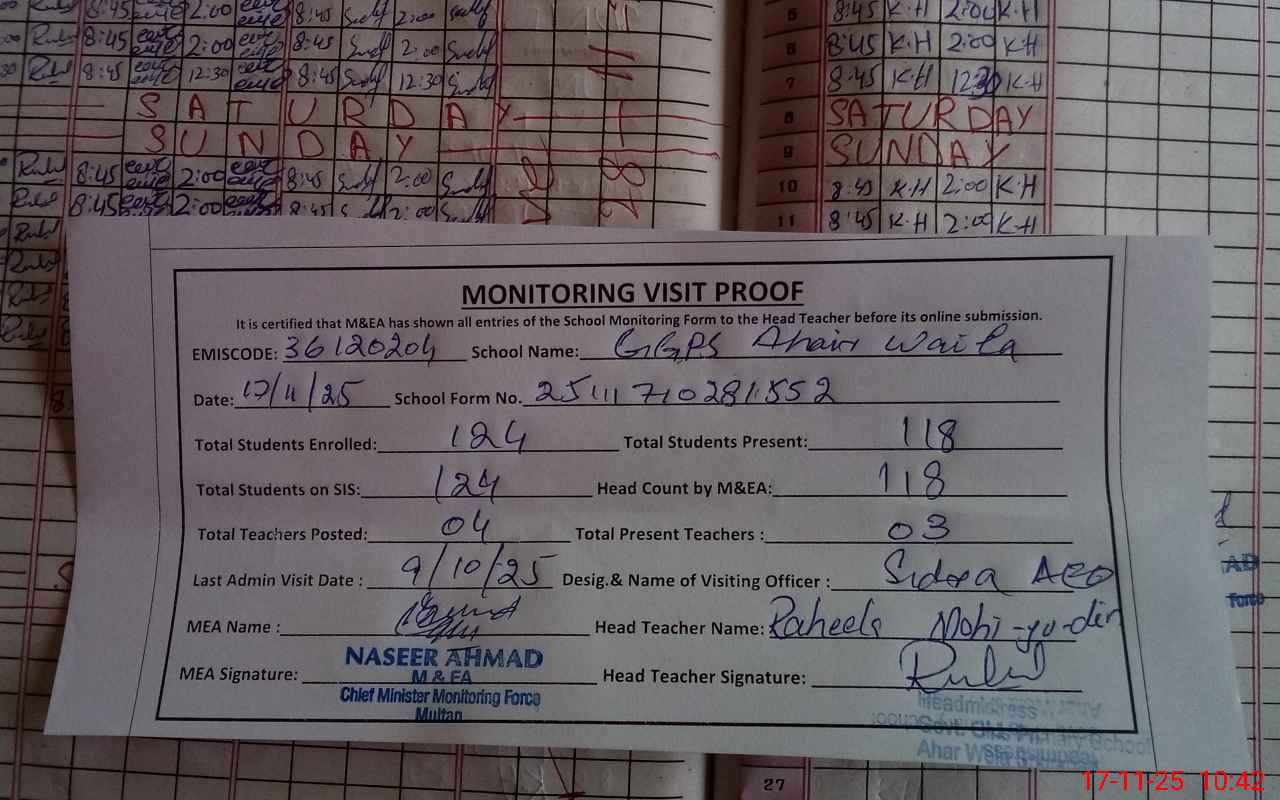 8:45 2:00 8:45 2:00
8:45 2:00 8:45 2:00
8:45 12:30 8:45 12:30
SATURDAY
SUNDAY
8:45 2:00 8:45 2:00
8:45 2:00 8:45 2:00
8:45 K.H 2:00 K.H
6 8:45 K.H 2:00 K.H
7 8:45 K.H 12:30 K.H
8 SATURDAY
9 SUNDAY
10 8:45 K.H 2:00 K.H
11 8:45 K.H 2:00 K.H
MONITORING VISIT PROOF
It is certified that M&EA has shown all entries of the School Monitoring Form to the Head Teacher before its online submission.
EMISCODE: 36120204 School Name: GGPS Ahair Waila
Date: 17/11/25 School Form No. 25111710281552
Total Students Enrolled: 124 Total Students Present: 118
Total Students on SIS: 124 Head Count by M&EA: 118
Total Teachers Posted: 04 Total Present Teachers : 03
Last Admin Visit Date : 9/10/25 Desig.& Name of Visiting Officer : Sidra AEO
MEA Name : Head Teacher Name: Raheela Mohi-yu-din
MEA Signature: Head Teacher Signature:
NASEER AHMAD
M & EA
Chief Minister Monitoring Force
Multan
Headmistress
27
17-11-25 10:42